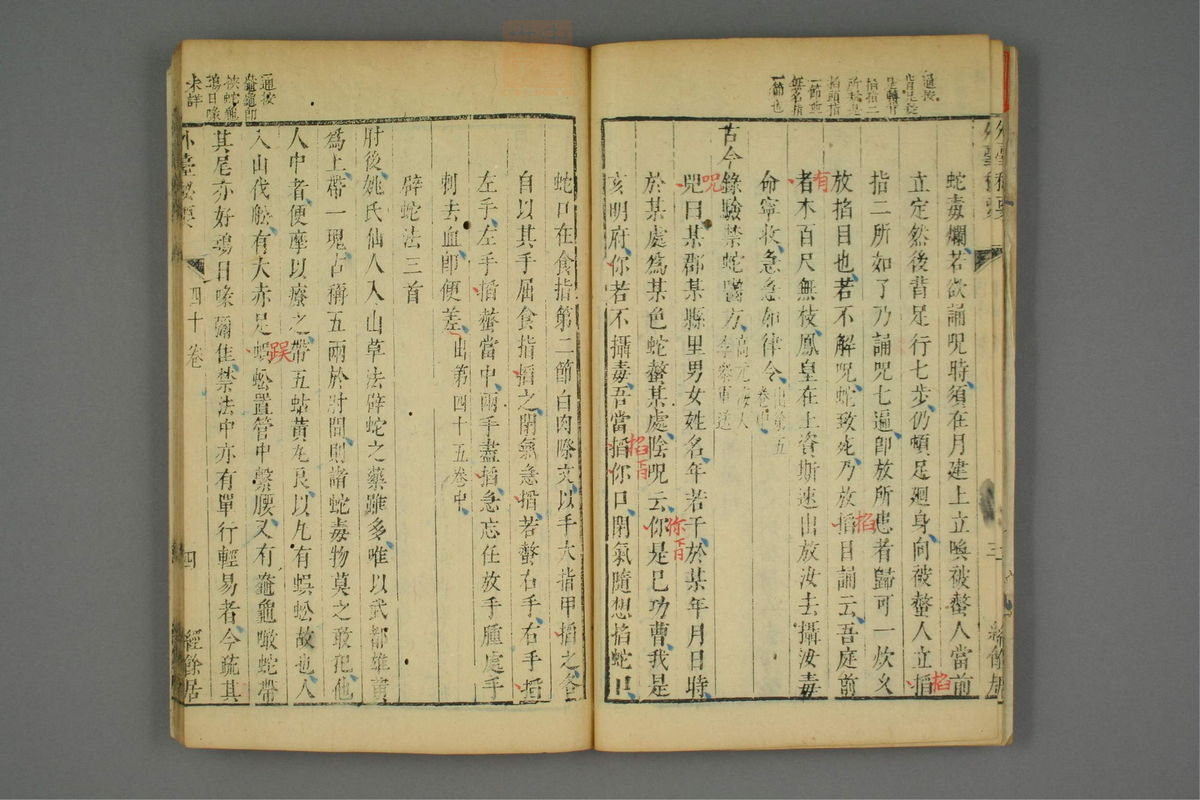 蛇毒爛若欲誦呪時須在月建上立喚被螫人當前
立定然後背足行七步仍頓足廻身向被螫人立搯
指二所如了乃誦呪七遍即放所患者歸可一炊久
放掐目也若不解呪蛇致死乃放搯目誦云吾庭前
者木百尺無枝鳳皇在上資斯速出放汝去攝汝毒
命寧收急急如律令出第五卷中
古今錄驗禁蛇螫方
呪曰某郡某縣里男女姓名年若干於某年月日時
於某處為某色蛇螫某處陰呪云你是巳功曹我是
亥明府你若不攝毒吾當搯你口閉氣隨想掐蛇口
蛇口在食指第二節白肉際文以手大指甲搯之令
自以其手屈食指搯之閉氣急搯若螫右手右手搯
左手左手搯螫當中兩手盡搯急忘任放手腫處手
刺去血即便差出第四十五卷中
辟蛇法三首
肘後姚氏仙人入山草法辟蛇之藥雖多唯以武都雄黃
為上帶一塊古稱五兩於肘間則諸蛇毒物莫之敢犯他
人中者便摩以療之帶五蛄黃丸良以丸有蜈蚣故也人
入山伐船有大赤足蜈蚣置管中繫腰又有龜噉蛇帶
其尾亦好鴆日喙彌佳禁法中亦有單行輕易者今疏其
外臺秘要
四十卷
四
經餘居
通按
未詳
有
呪
掐
掐